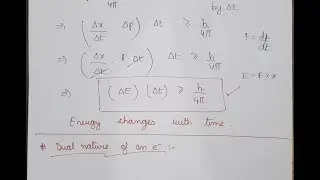 4π by Δt
⇒ (Δx/Δt Δp) Δt ≥ h/4π
f = dp/dt
⇒ (Δx/Δt · P · Δt) Δt ≥ h/4π
E = f × x
⇒ (ΔE) (Δt) ≥ h/4π
Energy changes with time.
* Dual nature of an e⁻ :-